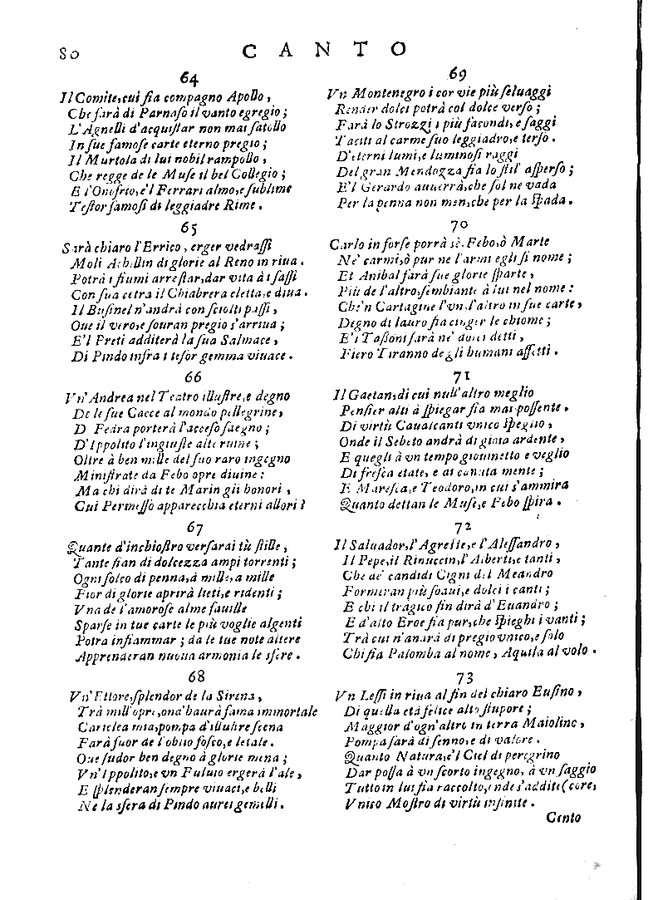 80 CANTO
64
Il Comite, cui fia compagno Apollo,
Che farà di Parnaso il vanto egregio;
L'Agnelli d'acquistar non mai satollo
In sue famose carte eterno pregio;
Il Murtola di lui nobil rampollo,
Che regge de le Muse il bel Collegio;
E l'Onofrio, e'l Ferrari almo, e sublime
Testor famosi di leggiadre Rime.
65
Sarà chiaro l'Errico, erger vedrassi
Moli Achillin di glorie al Reno in riva.
Potrà i fiumi arrestar, dar vita à i sassi
Con sua cetra il Chiabrera eletta, e diua.
Il Businel n'andrà con sciolti passi,
Oue il vero, e souran pregio s'arriua;
E'l Preti additerà la sua Salmace,
Di Pindo infra i tesor gemma viuace.
66
Vn'Andrea nel Teatro illustre, e degno
De le sue Cacce al mondo pellegrine,
D Fedra porterà l'acceso sdegno;
D'Ippolito l'ingiuste alte ruine;
Oltre à ben mille del suo raro ingegno
Ministrate da Febo opre diuine:
Ma chi dirà di te Marin gli honori,
Cui Permesso apparecchia eterni allori?
67
Quante d'inchiostro versarai tù stille,
Tante fian di dolcezza ampi torrenti;
Ogni solco di penna, à mille, a mille
Fior di glorie aprirà lieti, e ridenti;
Vna de l'amorose alme fauille
Sparse in tue carte le più voglie algenti
Potrà infiammar; da le tue note altere
Apprenderan nuoua armonia le sfere.
68
Vn'Ettore, splendor de la Sirena,
Trà mill'opre, ond'haurà fama immortale
Cariclea mia, pompa d'illustre scena
Farà fuor de l'oblio fosco, e letale.
Oue sudor ben degno à glorie mena;
Vn'Ippolito, e vn Fuluio ergerà l'ale,
E splenderan sempre viuaci, e belli
Ne la sfera di Pindo aurei gemelli.
69
Vn Montenegro i cor vie più seluaggi
Render dolci potrà col dolce verso;
Farà lo Strozzi i più facondi, e saggi
Taciti al carme suo leggiadro, e terso.
D'eterni lumi, e luminosi raggi
Del gran Mendozza fia lo stil' asperso;
E'l Gerardo auuerrà, che sol ne vada
Per la penna non men, che per la spada.
70
Carlo in forse porrà sè, Febo, ò Marte
Nè carmi, ò pur ne l'armi egli si nome;
Et Anibal farà sue glorie sparte,
Più de l'altro, sembiante à lui nel nome:
Ch'n Cartagine l'vn, l'altro in sue carte,
Degno di lauro fia cinger le chiome;
E'l Tassoni farà ne' detti,
Fiero Tiranno degli humani affetti.
71
Il Gaetan, di cui null'altro meglio
Pensier alti à spiegar fia mai possente.
Di virtù Caualcanti vnico speglio,
Onde il Sebeto andrà di gioia ardente,
E quegli à vn tempo giouinetto e veglio
Di fresca etate, e di canuta mente;
E Maresca, e Teodoro, in cui s'ammira
Quanto dettan le Muse, e Febo spira.
72
Il Saluador, l'Agrette, e l'Alessandro,
Il Pepe, il Rinuccin, l'Alberti, e tanti,
Che de' candidi Cigni del Meandro
Formeran più soaui, e dolci i canti;
E chi il tragico fin dirà d'Euandro;
E d'alto Eroe fia pur, che spieghi i vanti;
Trà cui n'andrà di pregio vnico, e solo
Chi fia Palomba al nome, Aquila al volo.
73
Vn Lessi in riua al fin del chiaro Eusino,
Di quella età felice alto stupore;
Maggior d'ogn'altro in terra Maiolino,
Pompa farà di senno, e di valore.
Quanto Natura, e'l Ciel di peregrino
Dar possa à vn scorto ingegno, à vn saggio
Tutto in lui fia raccolto, onde s'addite (core,
Vnico Mostro di virtù infinite.
Cento